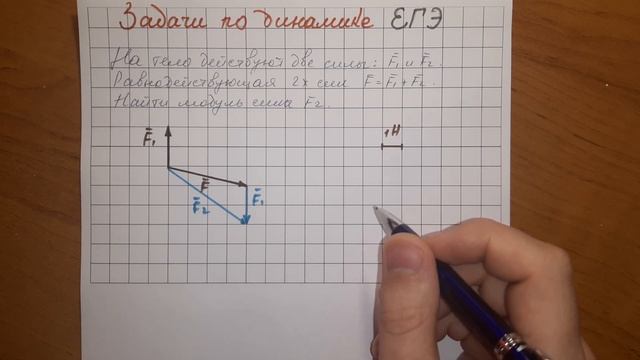 Задачи по динамике ЕГЭ
На тело действуют две силы: F̄₁ и F̄₂.
Равнодействующая 2х сил F̄ = F̄₁ + F̄₂.
Найти модуль силы F̄₂.
F̄₁
1Н
F̄
F̄₂
F̄₁